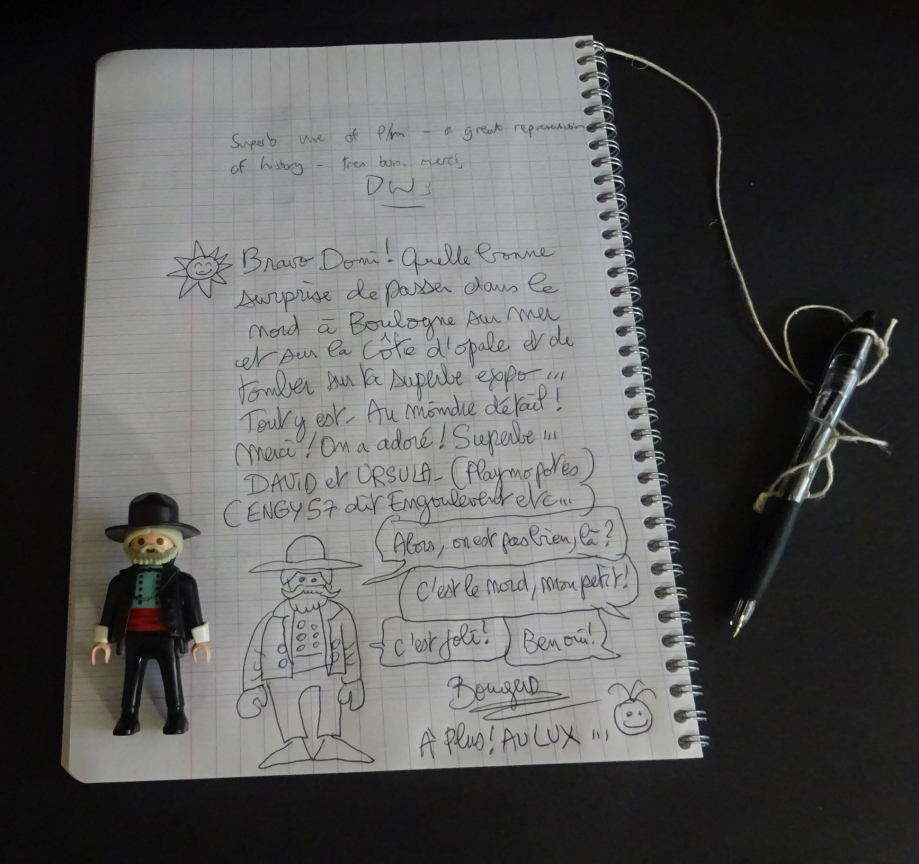 Superb use of Plm - a great representation
of history - tres bon. merci,
DWs
Bravo Domi! Quelle bonne
surprise de passer dans le
nord à Boulogne sur mer
et sur la Côte d'opale et de
tomber sur ta superbe expo ...
Tout y est - Au moindre détail!
Merci! On a adoré! Superbe ...
DAVID et URSULA - (Playmopotes)
(ENGY57 dit Engoulevent etc...)
Alors, on est pas bien, là?
C'est le nord, mon petit!
C'est joli! Ben oui!
A Plus! AU LUX ...